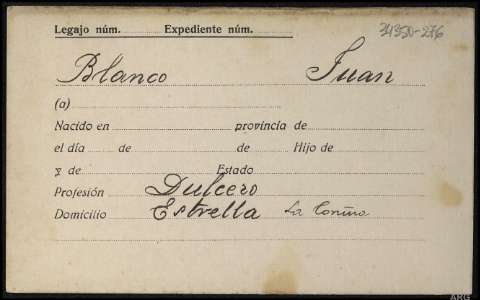 Legajo núm. Expediente núm. 31350-276
Blanco Juan
(a)
Nacido en provincia de
el día de de Hijo de
y de Estado
Profesión Dulcero
Domicilio Estrella La Coruña
ARG